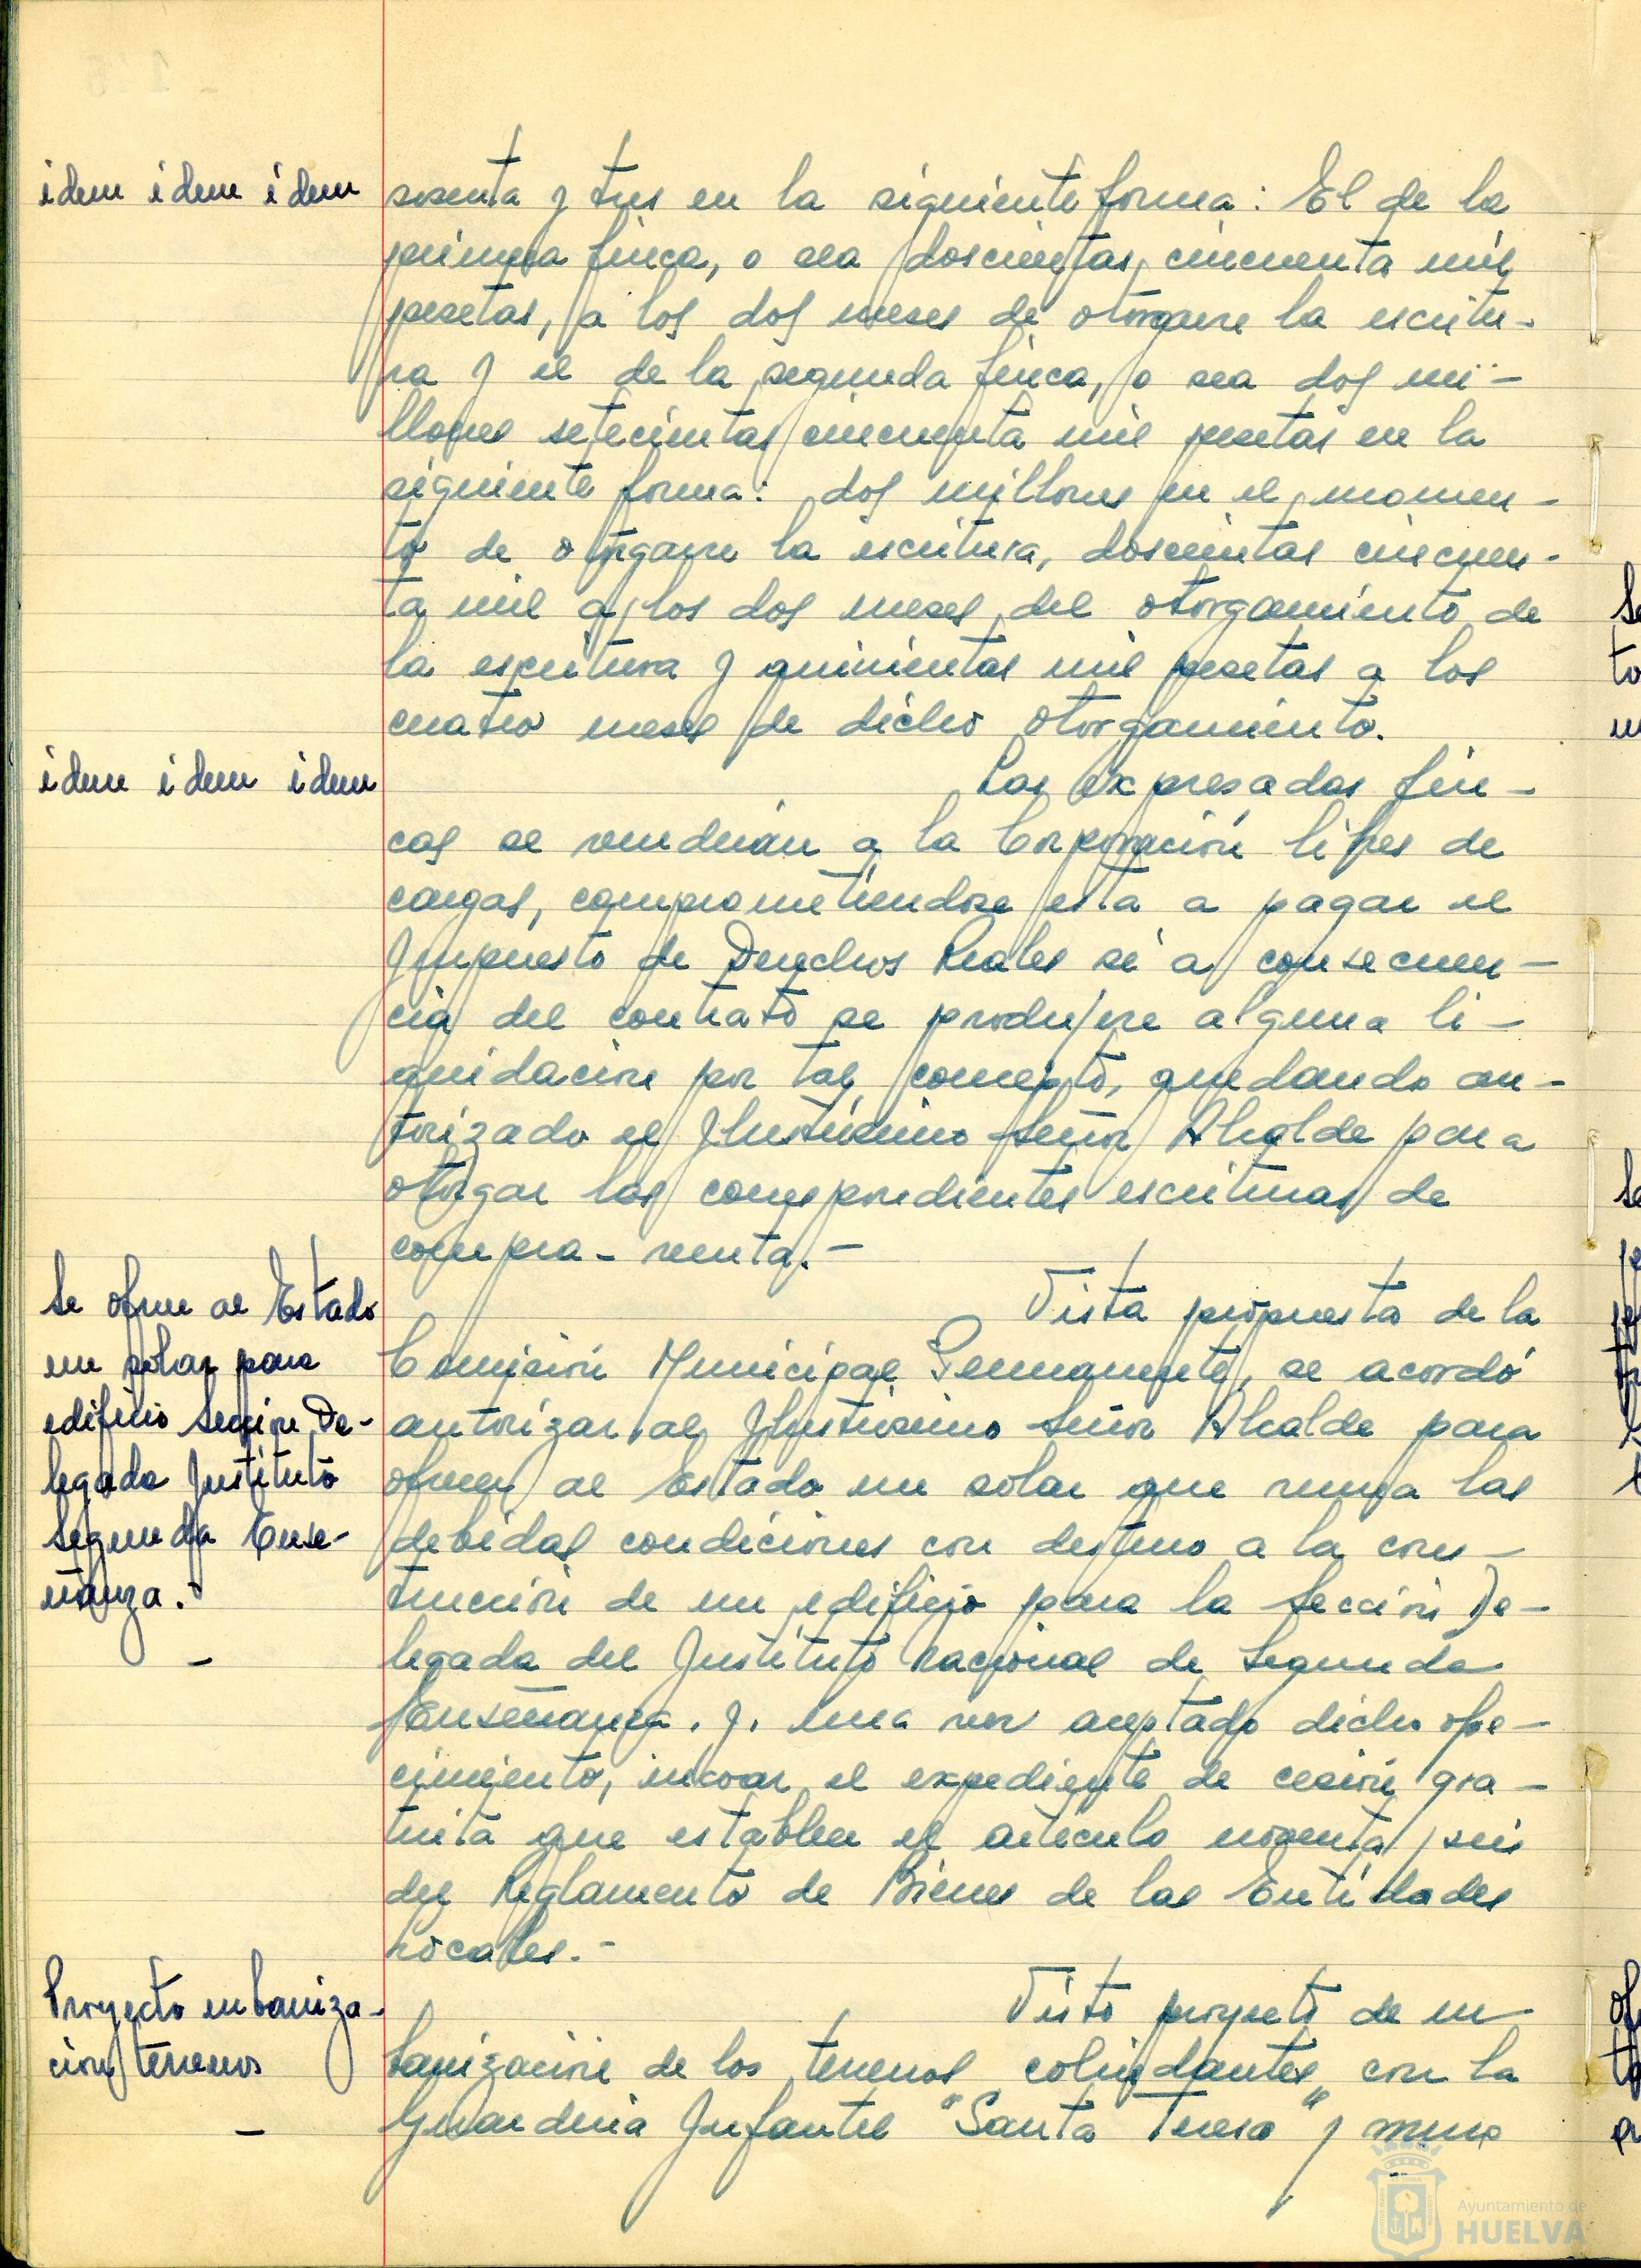 idem idem idem
sesenta y tres en la siguiente forma: El de la
primera finca, o sea doscientas cincuenta mil
pesetas, a los dos meses de otorgarse la escritu-
ra y el de la segunda finca, o sea dos mi-
llones setecientas cincuenta mil pesetas en la
siguiente forma: dos millones en el momen-
to de otorgarse la escritura, doscientas cincuen-
ta mil a los dos meses del otorgamiento de
la escritura y quinientas mil pesetas a los
cuatro meses de dicho otorgamiento.
idem idem idem
Las expresadas fin-
cas se venderán a la Corporación libres de
cargas, comprometiendose esta a pagar el
Impuesto de Derechos Reales si a consecuen-
cia del contrato se produjere alguna li-
quidación por tal concepto, quedando au-
torizado el Ilustrísimo Señor Alcalde para
otorgar las correspondientes escrituras de
compra-venta.-
Se ofrece al Estado
un solar para
edificio Sección De-
legada Instituto
Segunda Ense-
ñanza.-
-
Vista propuesta de la
Comisión Municipal Permanente, se acordó
autorizar al Ilustrísimo Señor Alcalde para
ofrecer al Estado un solar que reuna las
debidas condiciones con destino a la cons-
trucción de un edificio para la Sección De-
legada del Instituto Nacional de Segunda
Enseñanza. y. una vez aceptado dicho ofre-
cimiento, incoar el expediente de cesión gra-
tuita que establece el artículo noventa y seis
del Reglamento de Bienes de las Entidades
Locales.-
Proyecto urbaniza-
ción terrenos
-
Visto proyecto de ur-
banización de los terrenos colindantes con la
Guardería Infantil "Santa Teresa" y muro
Ayuntamiento de
HUELVA